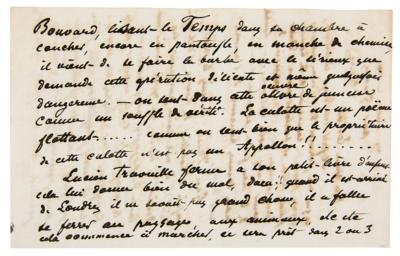 Bouvard, lisant le Temps dans sa chambre à
coucher, encore en pantoufle, en manche de chemise
il vient de se faire la barbe avec le sérieux que
demande cette opération délicate et même quelquefois
dangereuse. — on sent dans cette œuvre de jeunesse
comme un souffle de vérité. La culotte est un poème
flottant..... comme on sent bien que le propriétaire
de cette culotte n'est pas un Appollon !! .......
Lucien travaille ferme à son petit livre
cela lui donne bien du mal, dam!! quand il est arrivé
de Londres, il ne savait pas grand chose, il a fallu
se ferrer au paysage, aux animaux, etc etc
cela commence à marcher, ce sera prêt dans 2 ou 3